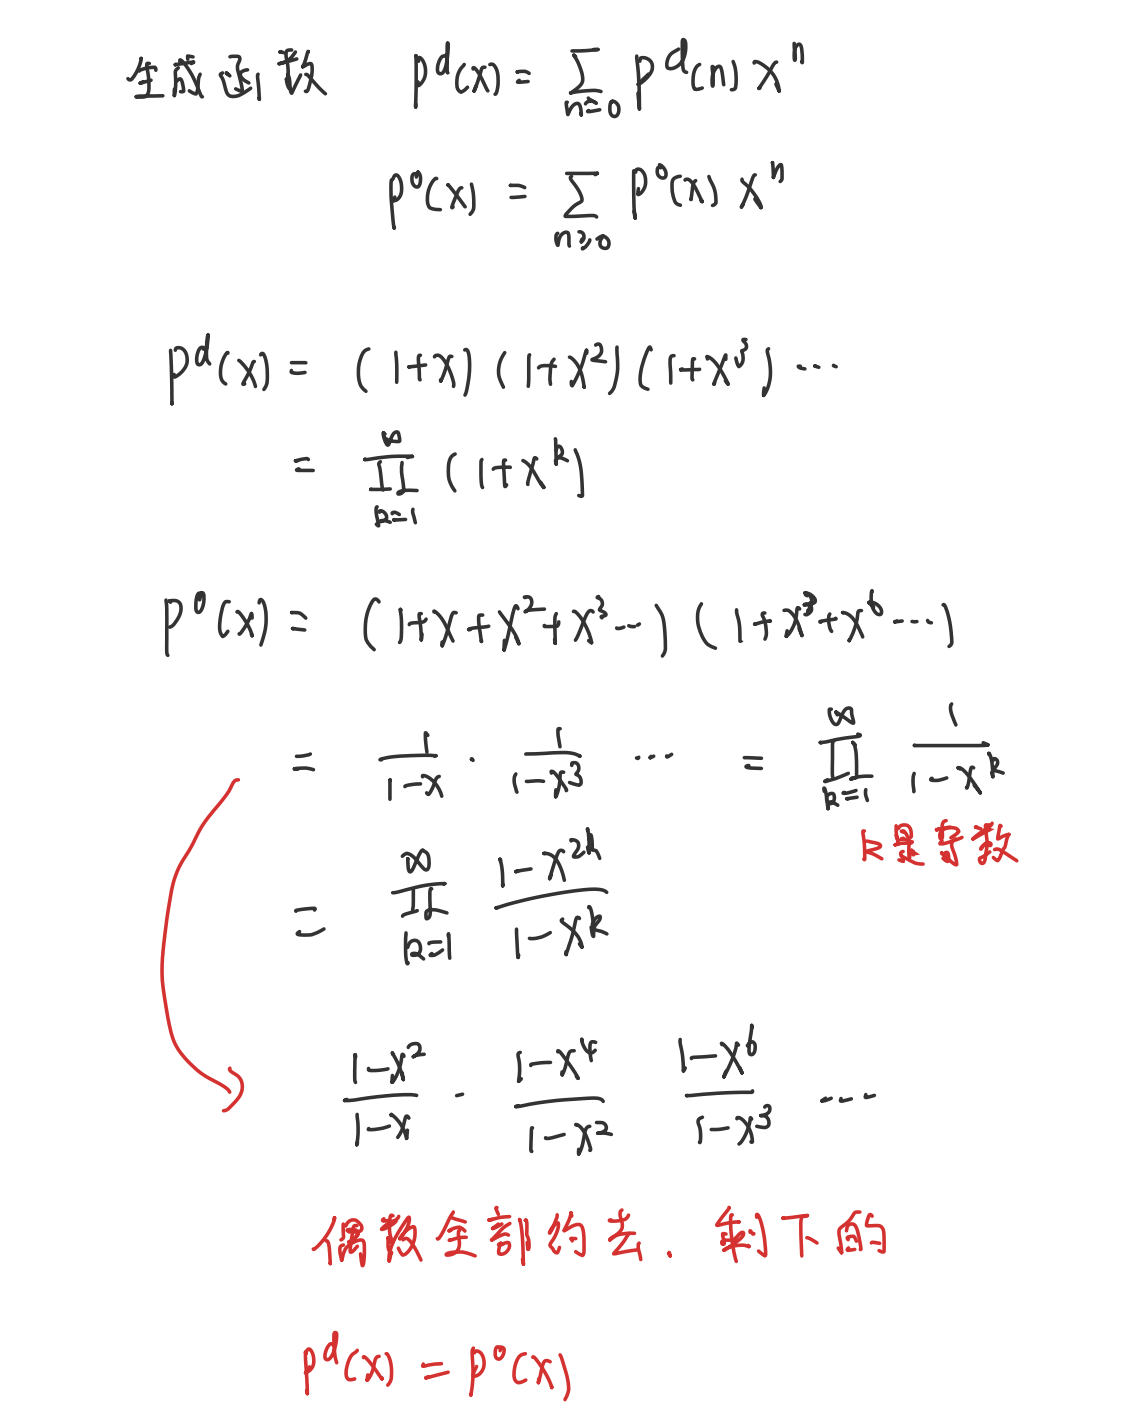 生成函数 P^d(x) = ∑_{n≥0} P^d(n) x^n
P^o(x) = ∑_{n≥0} P^o(x) x^n
P^d(x) = (1+x)(1+x^2)(1+x^3)···
= ∏_{k=1}^∞ (1+x^k)
P^o(x) = (1+x+x^2+x^3···)(1+x^3+x^6···)
= 1/(1-x) · 1/(1-x^3) ··· = ∏_{k=1}^∞ 1/(1-x^k)
k是奇数
= ∏_{k=1}^∞ (1-x^{2k})/(1-x^k)
(1-x^2)/(1-x) · (1-x^4)/(1-x^2) (1-x^6)/(1-x^3) ···
偶数全部约去. 剩下的
P^d(x) = P^o(x)